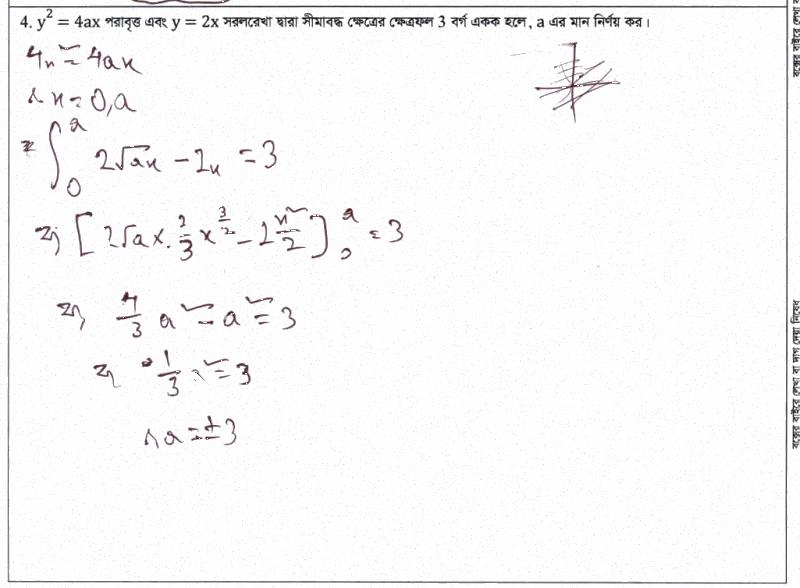 4. y² = 4ax পরাবৃত্ত এবং y = 2x সরলরেখা দ্বারা সীমাবদ্ধ ক্ষেত্রের ক্ষেত্রফল 3 বর্গ একক হলে, a এর মান নির্ণয় কর।
4x² = 4ax
∴ x = 0, a
∫₀ᵃ 2√ax - 2x = 3
⇒ [2√a × 2/3 x^(3/2) - 2 x²/2]₀ᵃ = 3
⇒ 4/3 a² - a² = 3
⇒ 1/3 a² = 3
∴ a = ±3
বক্সের বাইরে লেখা বা দাগ দেয়া নিষেধ